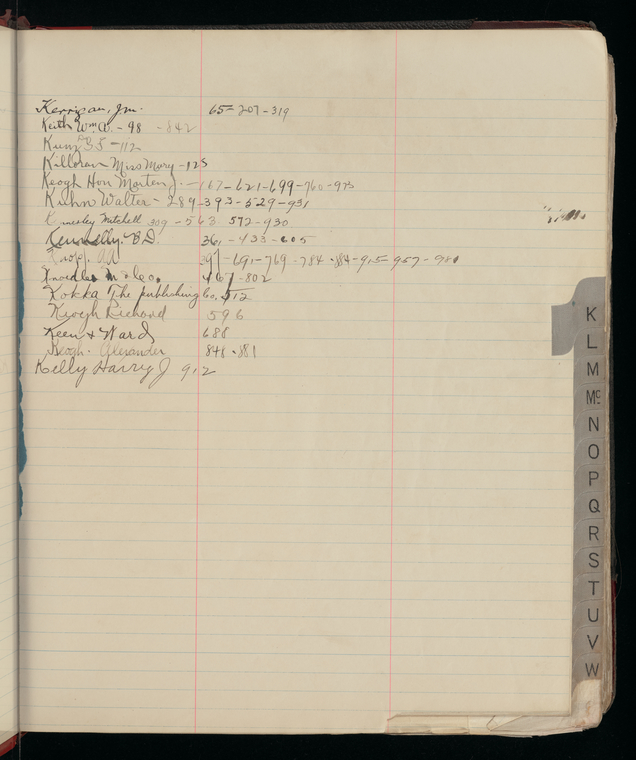 Kerrigan, Jm. 65-207-319
Keith Wm. - 98 - 842
Kunz 35-112
Killoran Miss Mary - 125
Keogh Hon Marten J. - 167-621-699-760-973
Kuhn Walter - 289-393-529-931
Mitchell 309 - 563 - 572-930
Kennelly. B.D. 361-433-605
-691-769-784-884-915-957-980
Knoedler M & Co. 467-802
Kokka The publishing Co. 512
Keogh Richard 596
Keen & Ward 688
Keogh. Alexander 848-881
Kelly Harry J 912
K
L
M
Mc
N
O
P
Q
R
S
T
U
V
W